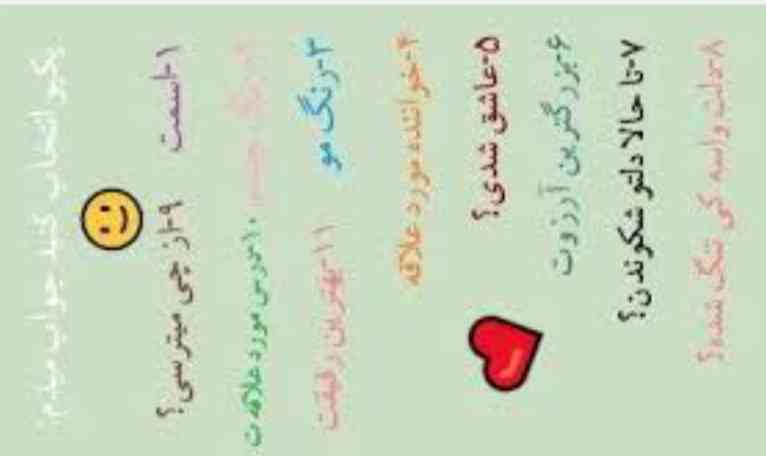 یکیو انتخاب کنید جواب میدم:
۱-اسمت
۲-رنگ چشم
۳-رنگ مو
۴-خواننده مورد علاقه
۵-عاشق شدی؟
۶-بزرگترین آرزوت
۷-تا حالا دلتو شکوندن؟
۸-دلت واسه کی تنگ شده؟
۹-از چی میترسی؟
۱۰-درس مورد علاقه ت
۱۱-بهترین رفیقت